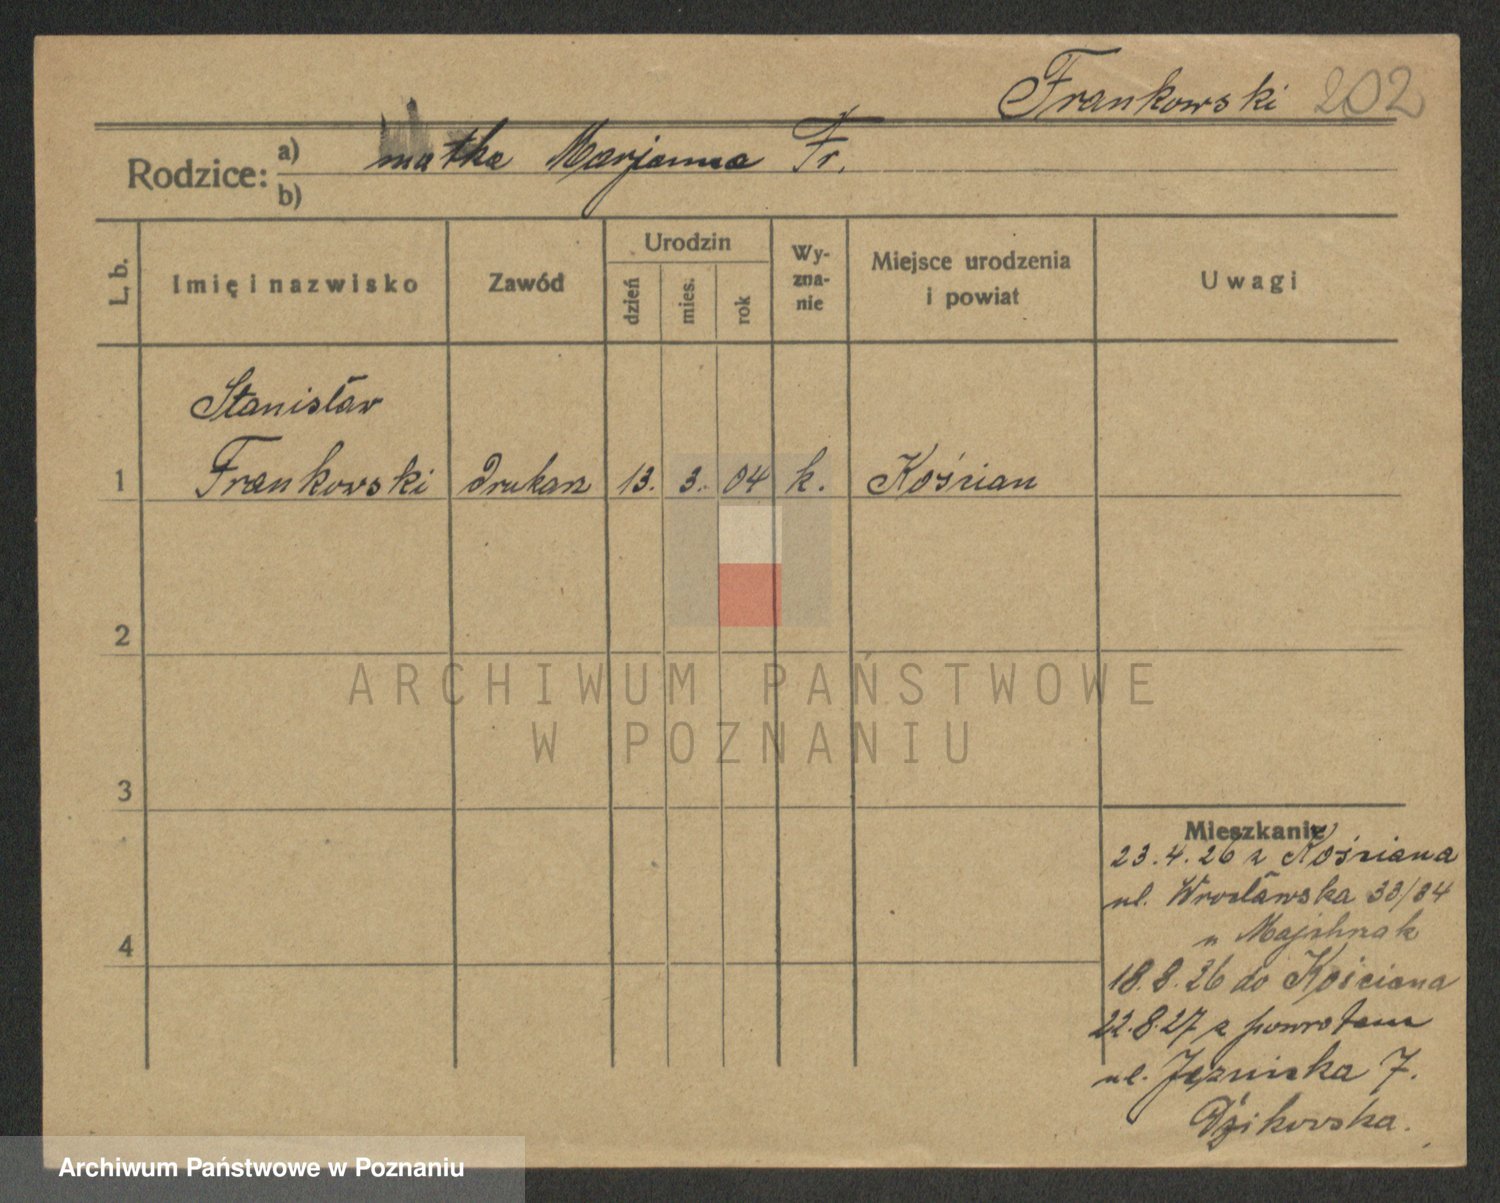 Frankowski 202
Rodzice: a) matka Marjanna Fr.
b)
L. b.
Imię i nazwisko
Zawód
Urodzin
dzień
mies.
rok
Wy-
zna-
nie
Miejsce urodzenia
i powiat
Uwagi
Stanisław
1 Frankowski drukarz 13. 3. 04 k. Kościan
2
3
4
Mieszkanie
23.4.26 z Kościana
ul. Wrocławska 33/34
u
18.8.26 do Kościana
22.8.27 z powrotem
ul. Jezuicka 7.
Dzikowska.
ARCHIWUM PAŃSTWOWE
W POZNANIU
Archiwum Państwowe w Poznaniu